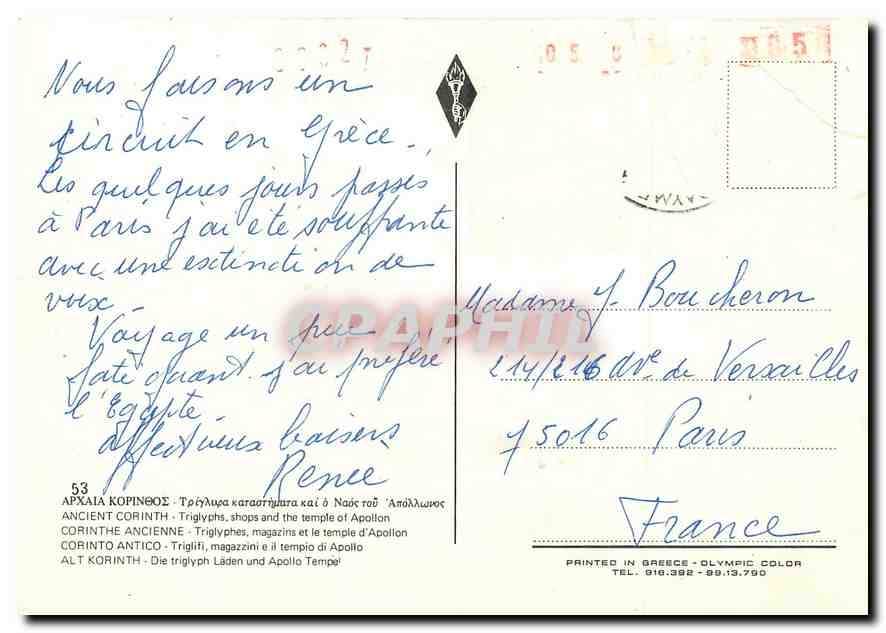 Nous faisons un
circuit en Grèce.
Les quelques jours passés
à Paris j'ai été souffrante
avec une extinction de
voix -
Voyage un peu
raté quant j'ai préféré
l'Egypte
affectueux baisers
Renée
53
ΑΡΧΑΙΑ ΚΟΡΙΝΘΟΣ - Τρίγλυφα καταστήματα καί ὁ Ναός τοῦ Ἀπόλλωνος
ANCIENT CORINTH - Triglyphs, shops and the temple of Apollon
CORINTHE ANCIENNE - Triglyphes, magazins et le temple d'Apollon
CORINTO ANTICO - Triglifi, magazzini e il tempio di Apollo
ALT KORINTH - Die triglyph Läden und Apollo Tempel
Madame J. Boucheron
214/216 Ave de Versailles
75016 Paris
France
PRINTED IN GREECE - OLYMPIC COLOR
TEL. 916.392 - 99.13.790
CPAPHIL